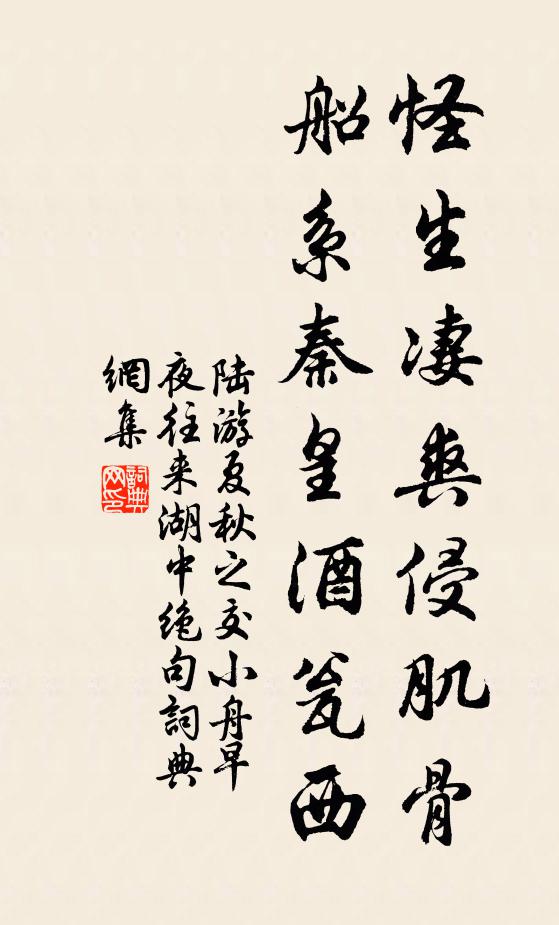 怪生凄爽侵肌骨
船系秦皇酒瓮西
陆游夏秋之交小舟早
夜往来湖中绝句詞典
網集
詞典
网印